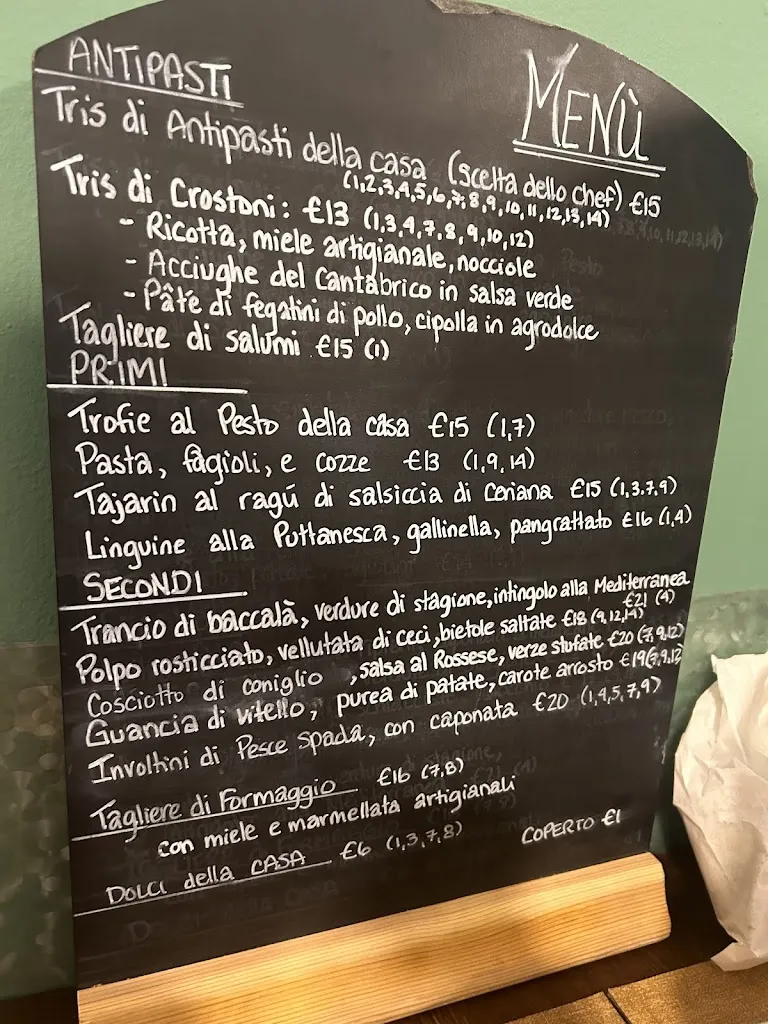 MENÙ
ANTIPASTI
Tris di Antipasti della casa (scelta dello chef) €15
(1,2,3,4,5,6,7,8,9,10,11,12,13,14)
Tris di Crostoni: €13 (1,3,4,7,8,9,10,12)
- Ricotta, miele artigianale, nocciole
- Acciughe del Cantabrico in salsa verde
- Pâté di fegatini di pollo, cipolla in agrodolce
Tagliere di salumi €15 (1)
PRIMI
Trofie al Pesto della casa €15 (1,7)
Pasta, fagioli, e cozze €13 (1,9,14)
Tajarin al ragú di salsiccia di Ceriana €15 (1,3.7,9)
Linguine alla Puttanesca, gallinella, pangrattato €16 (1,4)
SECONDI
Trancio di baccalà, verdure di stagione, intingolo alla Mediterranea
€21 (4)
Polpo rosticciato, vellutata di ceci, bietole saltate €18 (9,12,14)
Cosciotto di coniglio, salsa al Rossese, verze stufate €20 (7,9,12)
Guancia di vitello, purea di patate, carote arrosto €19 (7,9,12
Involtini di Pesce Spada, con caponata €20 (1,4,5,7,9)
Tagliere di Formaggio €16 (7,8)
con miele e marmellata artigianali
DOLCI della CASA €6 (1,3,7,8)
COPERTO €1